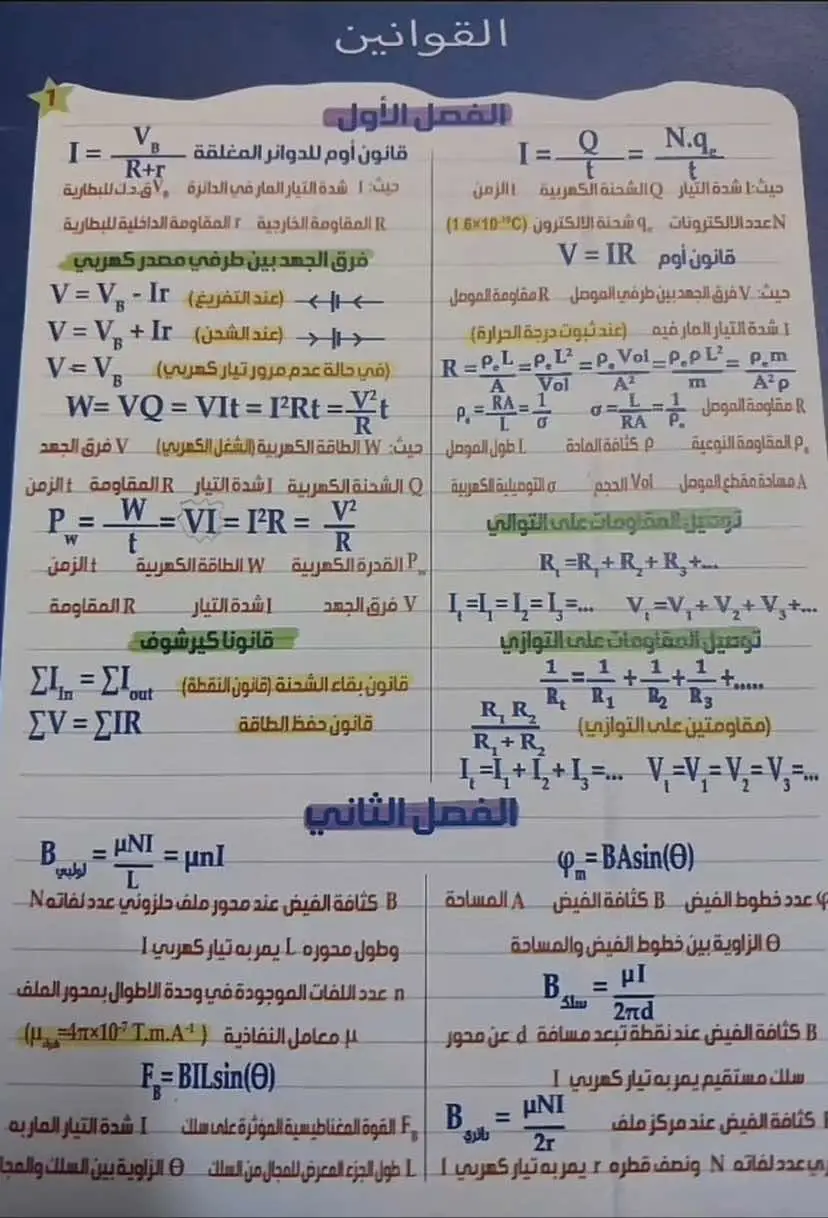 القوانين
1
الفصل الأول
I = Q/t = N.qₑ/t
حيث: I شدة التيار Q الشحنة الكهربية t الزمن
N عدد الالكترونات qₑ شحنة الالكترون (1.6×10⁻¹⁹C)
قانون أوم V = IR
حيث: V فرق الجهد بين طرفي الموصل R مقاومة الموصل
I شدة التيار المار فيه (عند ثبوت درجة الحرارة)
R = ρₑL/A = ρₑL²/Vol = ρₑVol/A² = ρₑρL²/m = ρₑm/A²ρ
R مقاومة الموصل σ = L/RA = 1/ρₑ ρₑ = RA/L = 1/σ
ρₑ المقاومة النوعية ρ كثافة المادة L طول الموصل
A مساحة مقطع الموصل Vol الحجم σ التوصيلية الكهربية
توصيل المقاومات على التوالي
Rₜ =R₁+ R₂+ R₃+...
Iₜ=I₁= I₂= I₃=... Vₜ=V₁+ V₂+ V₃+...
توصيل المقاومات على التوازي
1/Rₜ = 1/R₁ + 1/R₂ + 1/R₃ +.....
R₁ R₂/R₁+ R₂ (مقاومتين على التوازي)
Iₜ=I₁+ I₂+ I₃=... Vₜ=V₁= V₂= V₃=...
I = V_B/R+r قانون أوم للدوائر المغلقة
حيث: I شدة التيار المار في الدائرة V_B ق.د.ك للبطارية
R المقاومة الخارجية r المقاومة الداخلية للبطارية
فرق الجهد بين طرفي مصدر كهربي
V = V_B - Ir (عند التفريغ)
V = V_B + Ir (عند الشحن)
V = V_B (في حالة عدم مرور تيار كهربي)
W= VQ = VIt = I²Rt = V²/R t
حيث: W الطاقة الكهربية (الشغل الكهربي) V فرق الجهد
Q الشحنة الكهربية I شدة التيار R المقاومة t الزمن
P_w = W/t = VI = I²R = V²/R
P_w القدرة الكهربية W الطاقة الكهربية t الزمن
V فرق الجهد I شدة التيار R المقاومة
قانونا كيرشوف
∑I_In = ∑I_out قانون بقاء الشحنة (قانون النقطة)
∑V = ∑IR قانون حفظ الطاقة
الفصل الثاني
φₘ= BAsin(Θ)
φ عدد خطوط الفيض B كثافة الفيض A المساحة
Θ الزاوية بين خطوط الفيض والمساحة
B سلك = μI/2πd
B كثافة الفيض عند نقطة تبعد مسافة d عن محور
سلك مستقيم يمر به تيار كهربي I
B دائري = μNI/2r
كثافة الفيض عند مركز ملف
عدد لفاته N ونصف قطره r يمر به تيار كهربي I
B لولبي = μNI/L = μnI
B كثافة الفيض عند محور ملف حلزوني عدد لفاته N
وطول محوره L يمر به تيار كهربي I
n عدد اللفات الموجودة في وحدة الاطوال بمحور الملف
μ معامل النفاذية (μ هواء=4π×10⁻⁷ T.m.A⁻¹)
F_B= BILsin(Θ)
F_B القوة المغناطيسية المؤثرة على سلك I شدة التيار المار به
L طول الجزء المعرض للمجال من السلك Θ الزاوية بين السلك